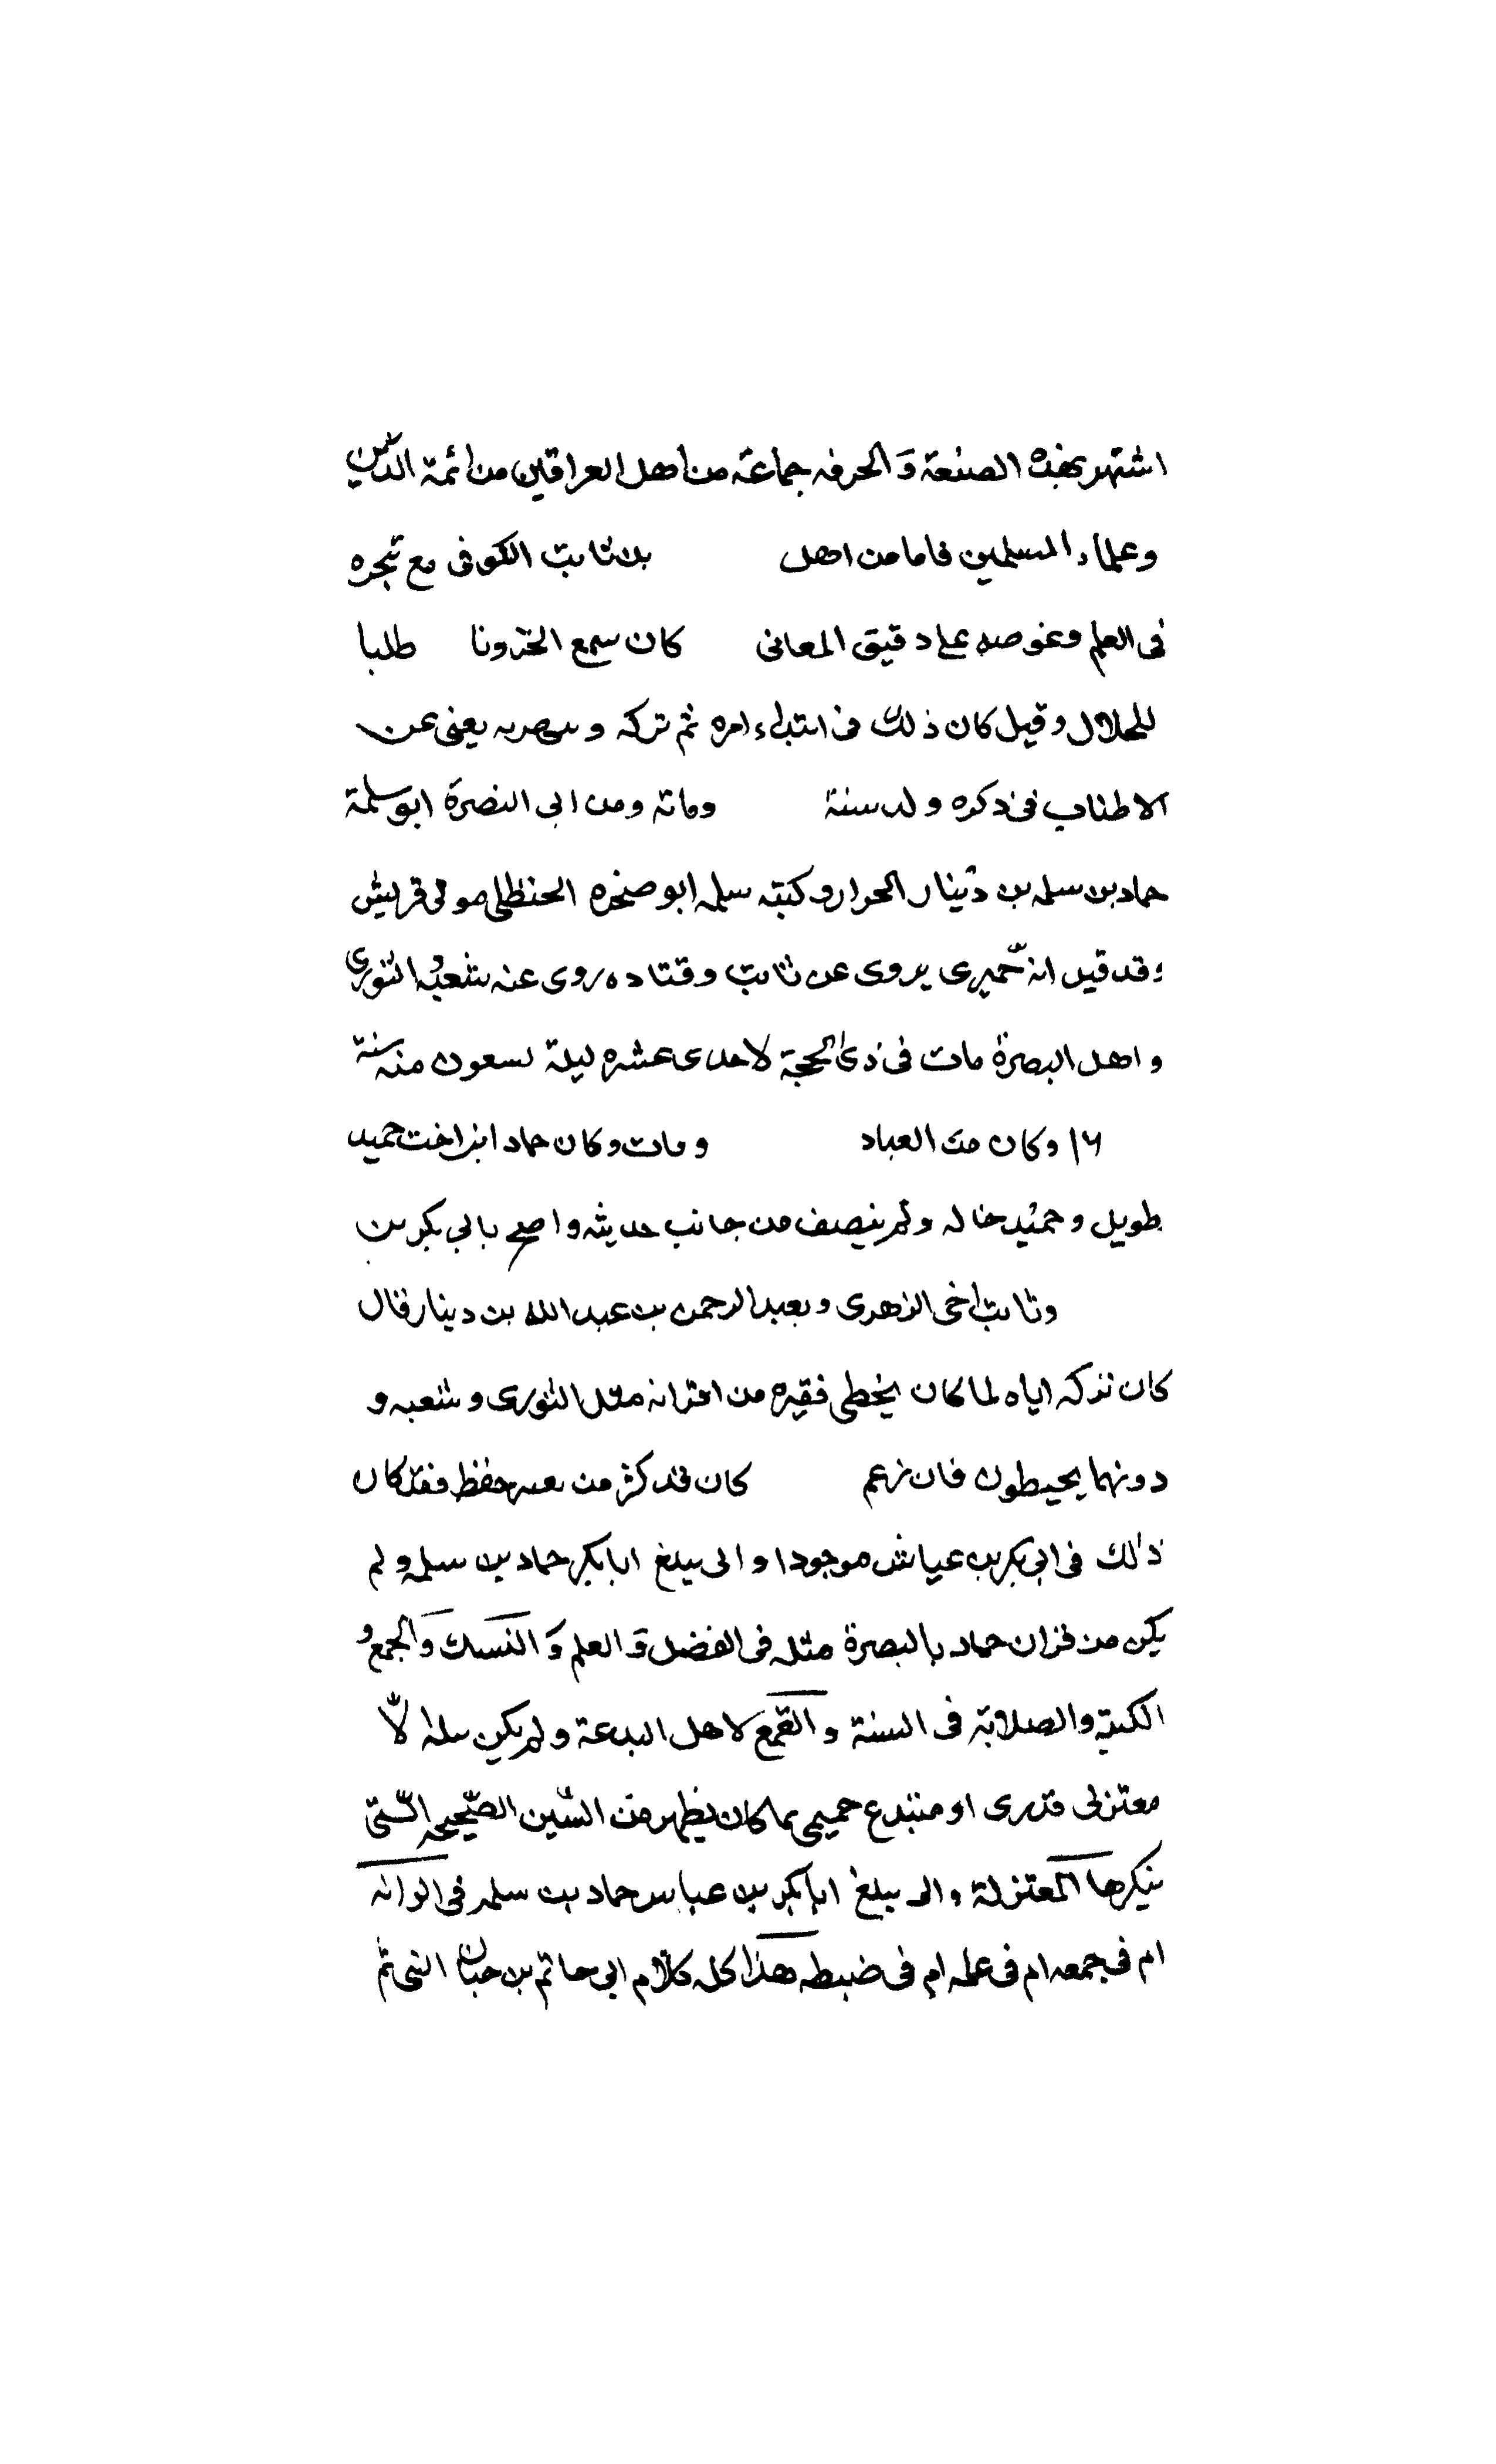 اشتهر بهذه الصنعة و الحرفه جماعة من اهل العراقين من ائمة الدين
وعلماء المسلمين فاما من اهل بن ثابت الكوفى مع تبحره
فى العلم وغوصه على دقيق المعانى كان سمع طلبا
للحلال و قيل كان ذلك فى ابتداء امره ثم تركه و يعنى عن
الاطناب فى ذكره ولد سنة ومائة ومن ابى النصرة ابو سلمة
حماد بن سلمه بن دينار الحرار و كنيته سلمه ابو صخره الحنظلى مولى قريش
وقد قيل انه حميرى يروى عن ثابت و قتاده روى عنه شعبه و الثورى
و اهل البصرة مات فى ذى الحجة لاحدى عشره ليلة منه سنة
١٦ وكان من العباد و مات وكان حماد ابن اخت حميد
طويل و حميد خاله ولم ينصف من جانب حديثه و بابى بكر بن
وثابت اخى الزهرى و بعبد الرحمن بن عبد الله بن دينار قال
كان تركه اياه لما كان يخطى فغيره من اقرانه مثل الثورى و شعبه و
دونهما يحيطون فان زعم كان قد كثر من حفظ فقد كان
ذلك فى ابى بكر بن عياش موجودا و انى يبلغ ابا بكر حماد بن سلمه و لم
يكن من قران حماد بالبصرة مثله فى الفضل و العلم و النسك و الجمع و
الكتبة والصلابة فى السنة و القمع لاهل البدعة و لم يكن الا
معتزلى قدرى او مبتدع جهمى بما كان يظهر من السنن الصحيحه التى
ينكرها المعتزلة و انى يبلغ ابا بكر بن عياس حماد بن سلمه فى
ام فى جمعه ام فى علمه ام فى ضبطه هذا كله كلام ابى حاتم بن حبان